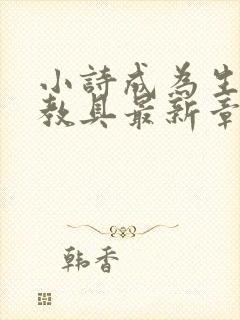 小詩成為生
教具最新章
韩香